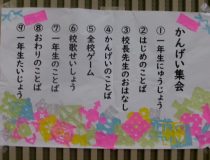 かんげい集会
①一年生にゅうじょう
②はじめのことば
③校長先生のおはなし
④かんげいのことば
⑤全校ゲーム
⑥校歌せいしょう
⑦一年生のことば
⑧おわりのことば
⑨一年生たいじょう